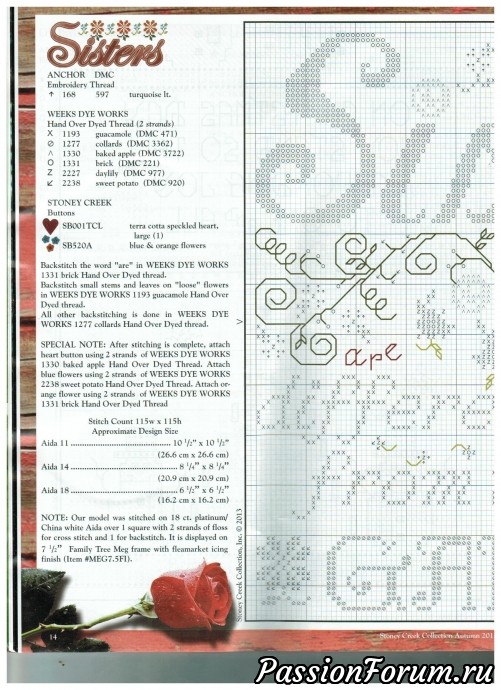 Sisters
ANCHOR DMC
Embroidery Thread
↑ 168 597 turquoise lt.
WEEKS DYE WORKS
Hand Over Dyed Thread (2 strands)
X 1193 guacamole (DMC 471)
⊘ 1277 collards (DMC 3362)
^ 1330 baked apple (DMC 3722)
O 1331 brick (DMC 221)
Z 2227 daylily (DMC 977)
↙ 2238 sweet potato (DMC 920)
STONEY CREEK
Buttons
SB001TCL terra cotta speckled heart,
large (1)
SB520A blue & orange flowers
Backstitch the word "are" in WEEKS DYE WORKS
1331 brick Hand Over Dyed thread.
Backstitch small stems and leaves on "loose" flowers
in WEEKS DYE WORKS 1193 guacamole Hand Over
Dyed thread.
All other backstitching is done in WEEKS DYE
WORKS 1277 collards Hand Over Dyed thread.
SPECIAL NOTE: After stitching is complete, attach
heart button using 2 strands of WEEKS DYE WORKS
1330 baked apple Hand Over Dyed Thread. Attach
blue flowers using 2 strands of WEEKS DYE WORKS
2238 sweet potato Hand Over Dyed Thread. Attach or-
ange flower using 2 strands of WEEKS DYE WORKS
1331 brick Hand Over Dyed Thread
Stitch Count 115w x 115h
Approximate Design Size
Aida 11 ........ 10 1/2" x 10 1/2"
(26.6 cm x 26.6 cm)
Aida 14 ........ 8 1/4" x 8 1/4"
(20.9 cm x 20.9 cm)
Aida 18 ........ 6 1/2" x 6 1/2"
(16.2 cm x 16.2 cm)
NOTE: Our model was stitched on 18 ct. platinum/
China white Aida over 1 square with 2 strands of floss
for cross stitch and 1 for backstitch. It is displayed on
7 1/2" Family Tree Meg frame with fleamarket icing
finish (Item #MEG7.5FI).
14
Stoney Creek Collection, Inc. © 2013
are
differe
from
Stoney Creek Collection Autumn 201
PassionForum.ru